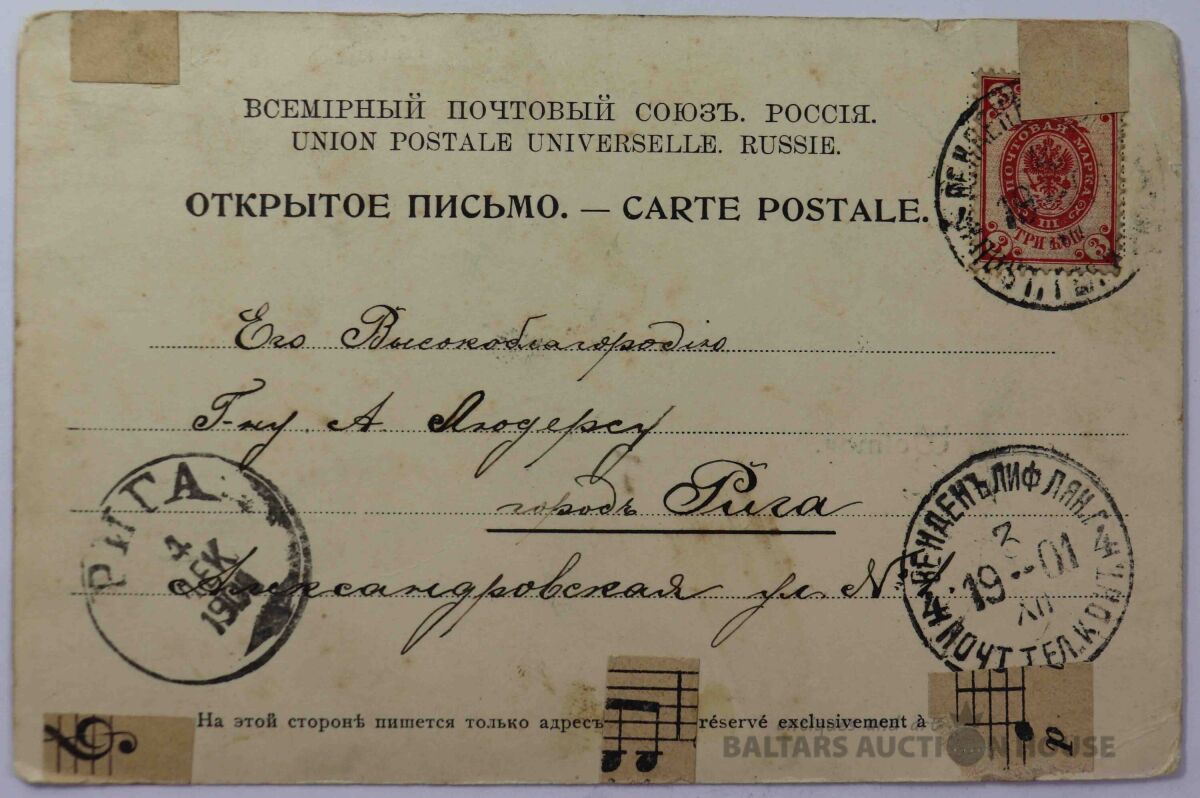 ВСЕМІРНЫЙ ПОЧТОВЫЙ СОЮЗЪ. РОССІЯ.
UNION POSTALE UNIVERSELLE. RUSSIE.
ОТКРЫТОЕ ПИСЬМО. — CARTE POSTALE.
ПОЧТОВАЯ МАРКА
III
3 ТРИ КОП 3
Его Высокоблагородію
Г-ну А. Людерсу
городъ Рига
Александровская ул №
РИГА
4
ДЕК
ВЕНДЕНЪ ЛИФЛЯН. Г.
3
19 01
XII
ПОЧТ. ТЕЛ. КОНТ.
На этой сторонѣ пишется только адресъ
réservé exclusivement à
p
BALTARS AUCTION HOUSE